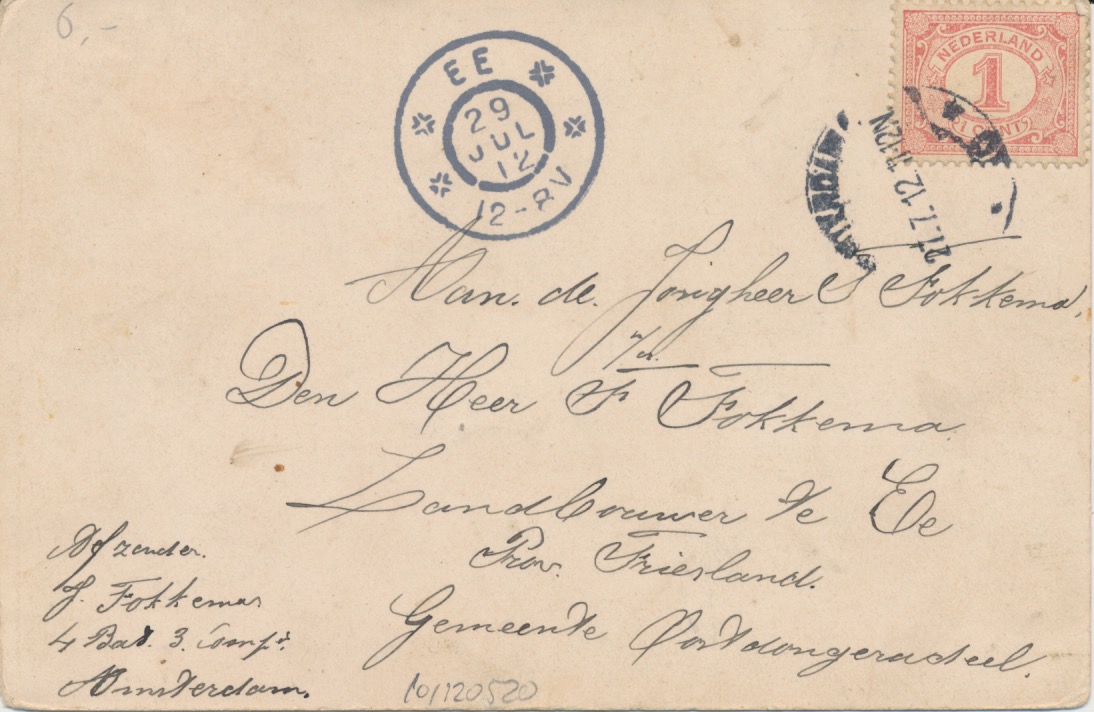 6,-
EE
29
JUL
12
12-8V
NEDERLAND
1
1 CENT
27.7.12. 12N
Aan. de. Jongheer S Fokkema,
p/a.
Den Heer F Fokkema
Landbouwer te Ee
Prov. Friesland.
Gemeente Oostdongeradeel.
Afzender.
J. Fokkema
4 Bat. 3. Comp.
Amsterdam.
101120520